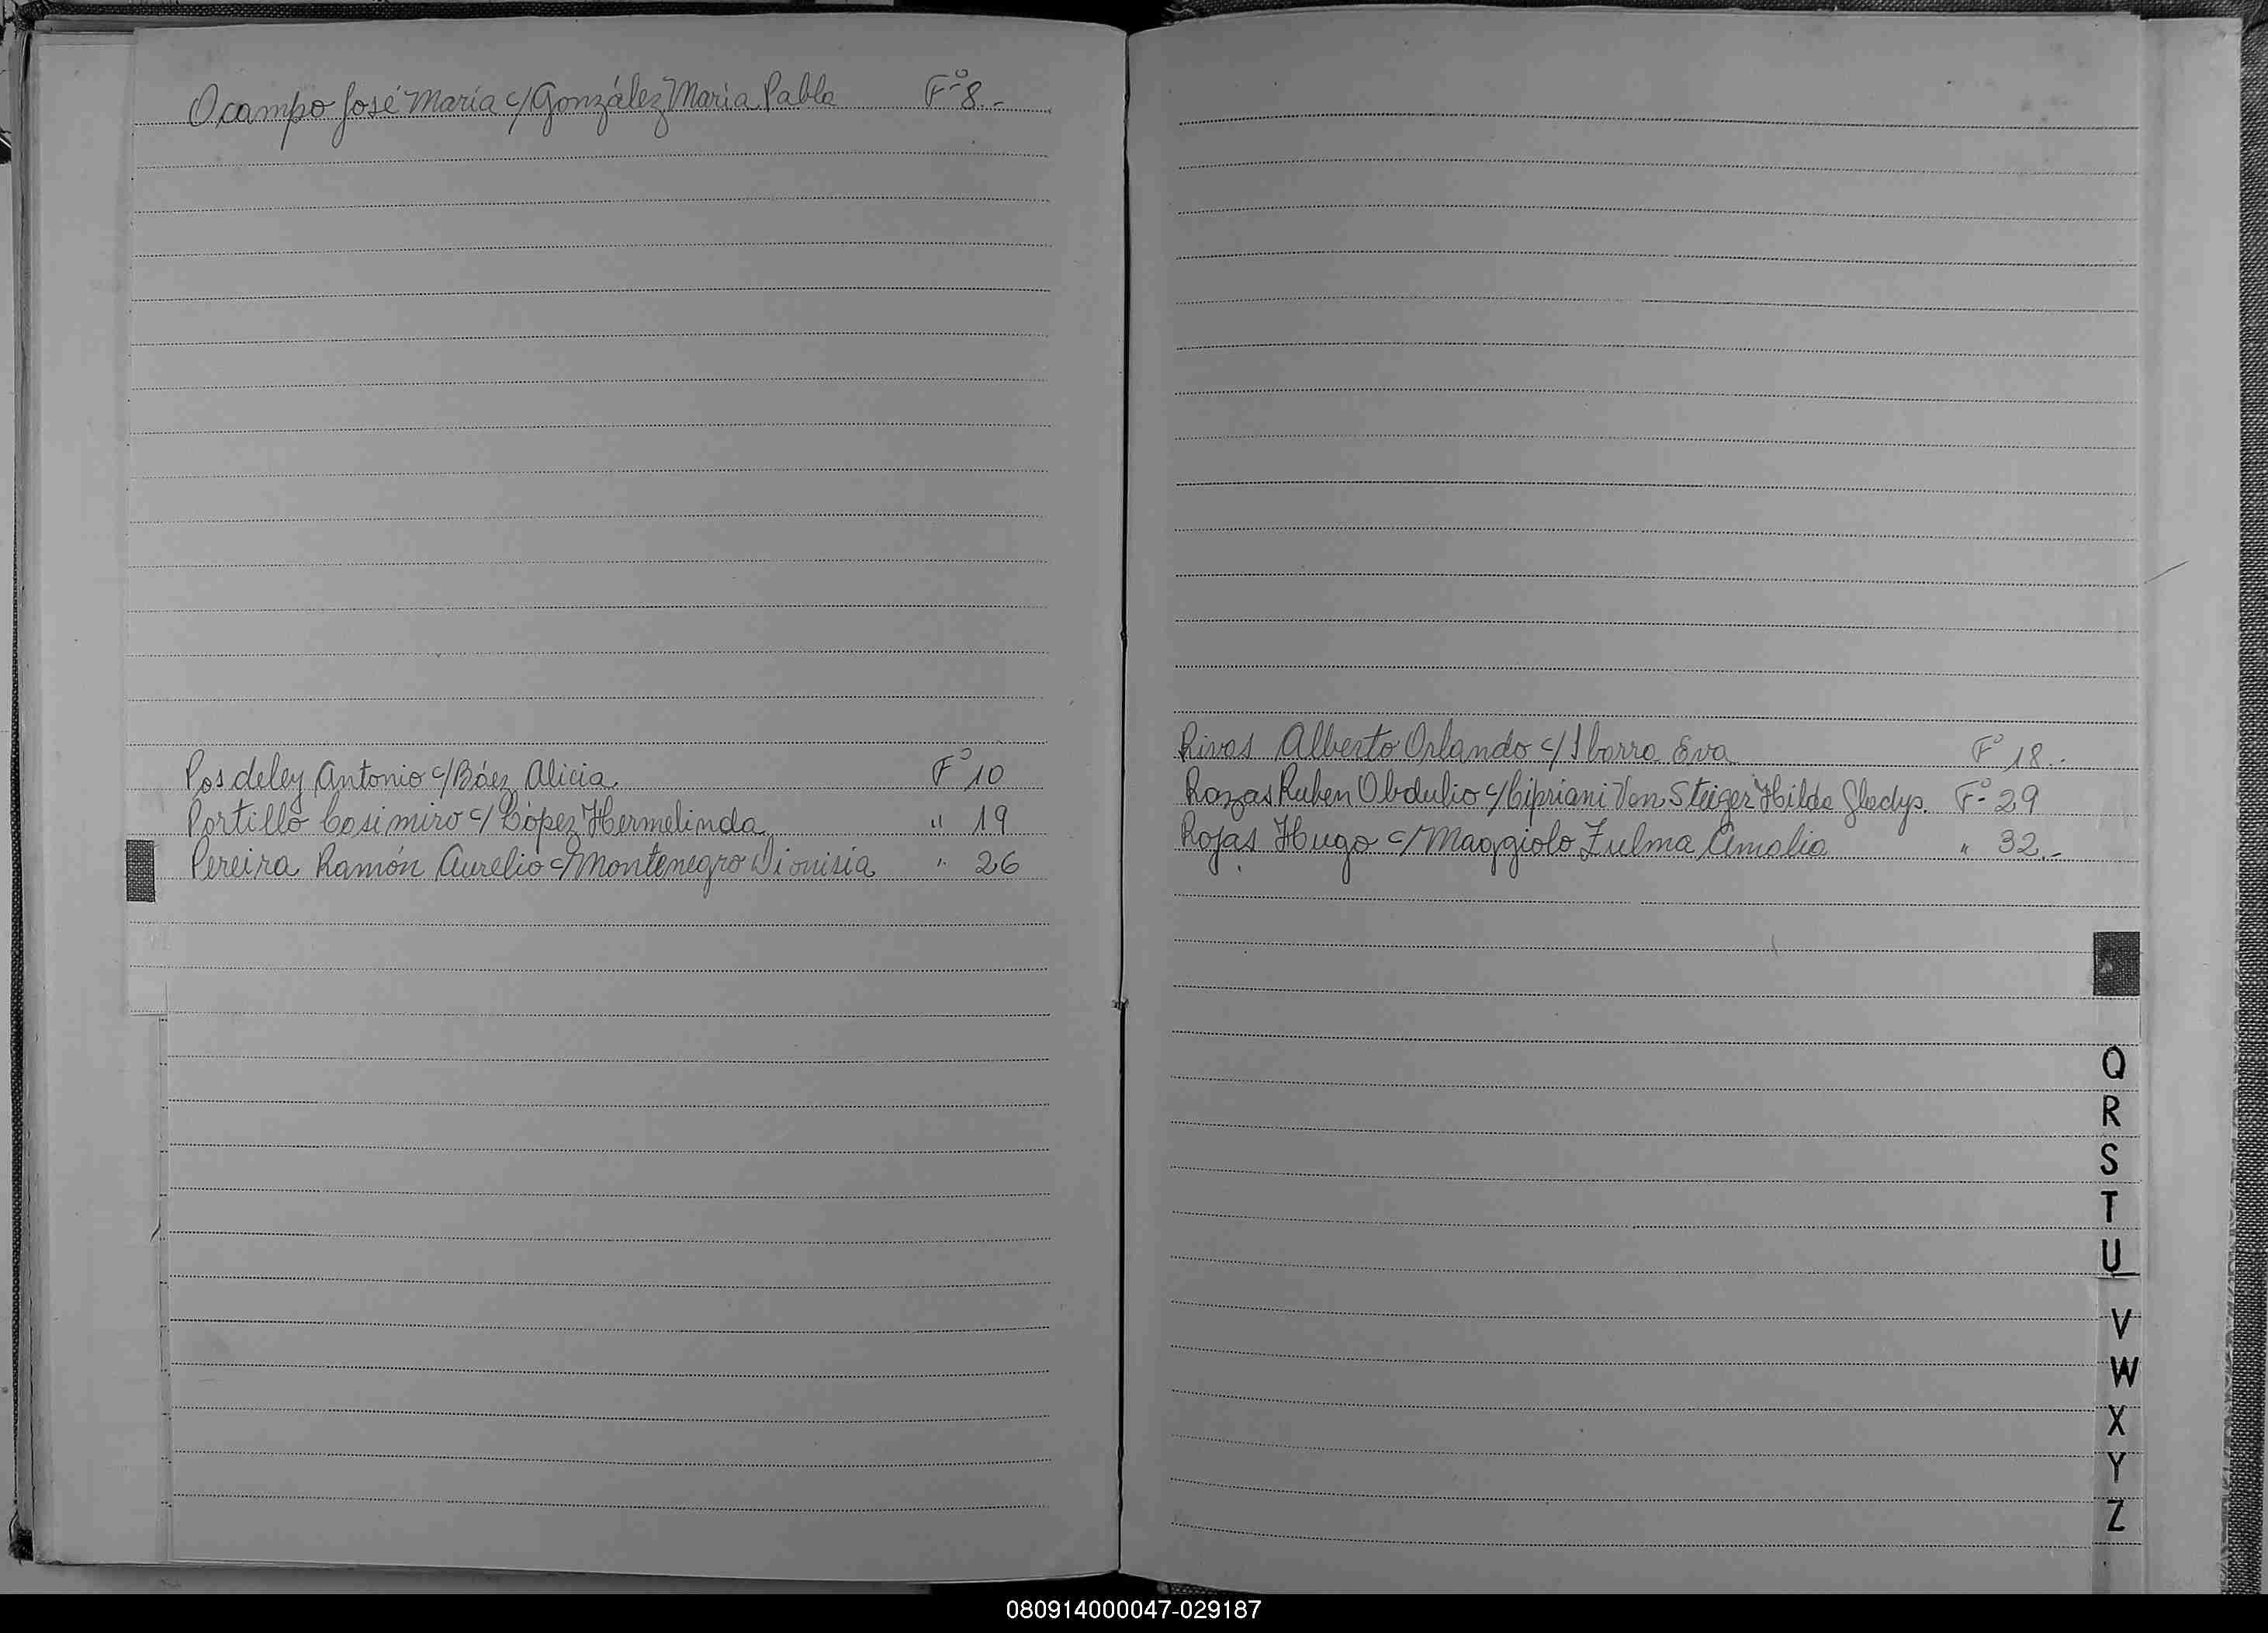 Ocampo José María c/ González María Pabla Fº 8.-
Posdeley Antonio c/ Báez Alicia Fº 10
Portillo Cosimiro c/ López Hermelinda " 19
Pereira Ramón Aurelio c/ Montenegro Dionisia " 26
Rivas Alberto Orlando c/ Ibarra Eva Fº 18.-
Rozas Ruben Obdulio c/ Cipriani Von Steiger Hilda Gladys. Fº 29
Rojas Hugo c/ Maggiolo Zulma Amalia " 32.-
Q
R
S
T
U
V
W
X
Y
Z
080914000047-029187